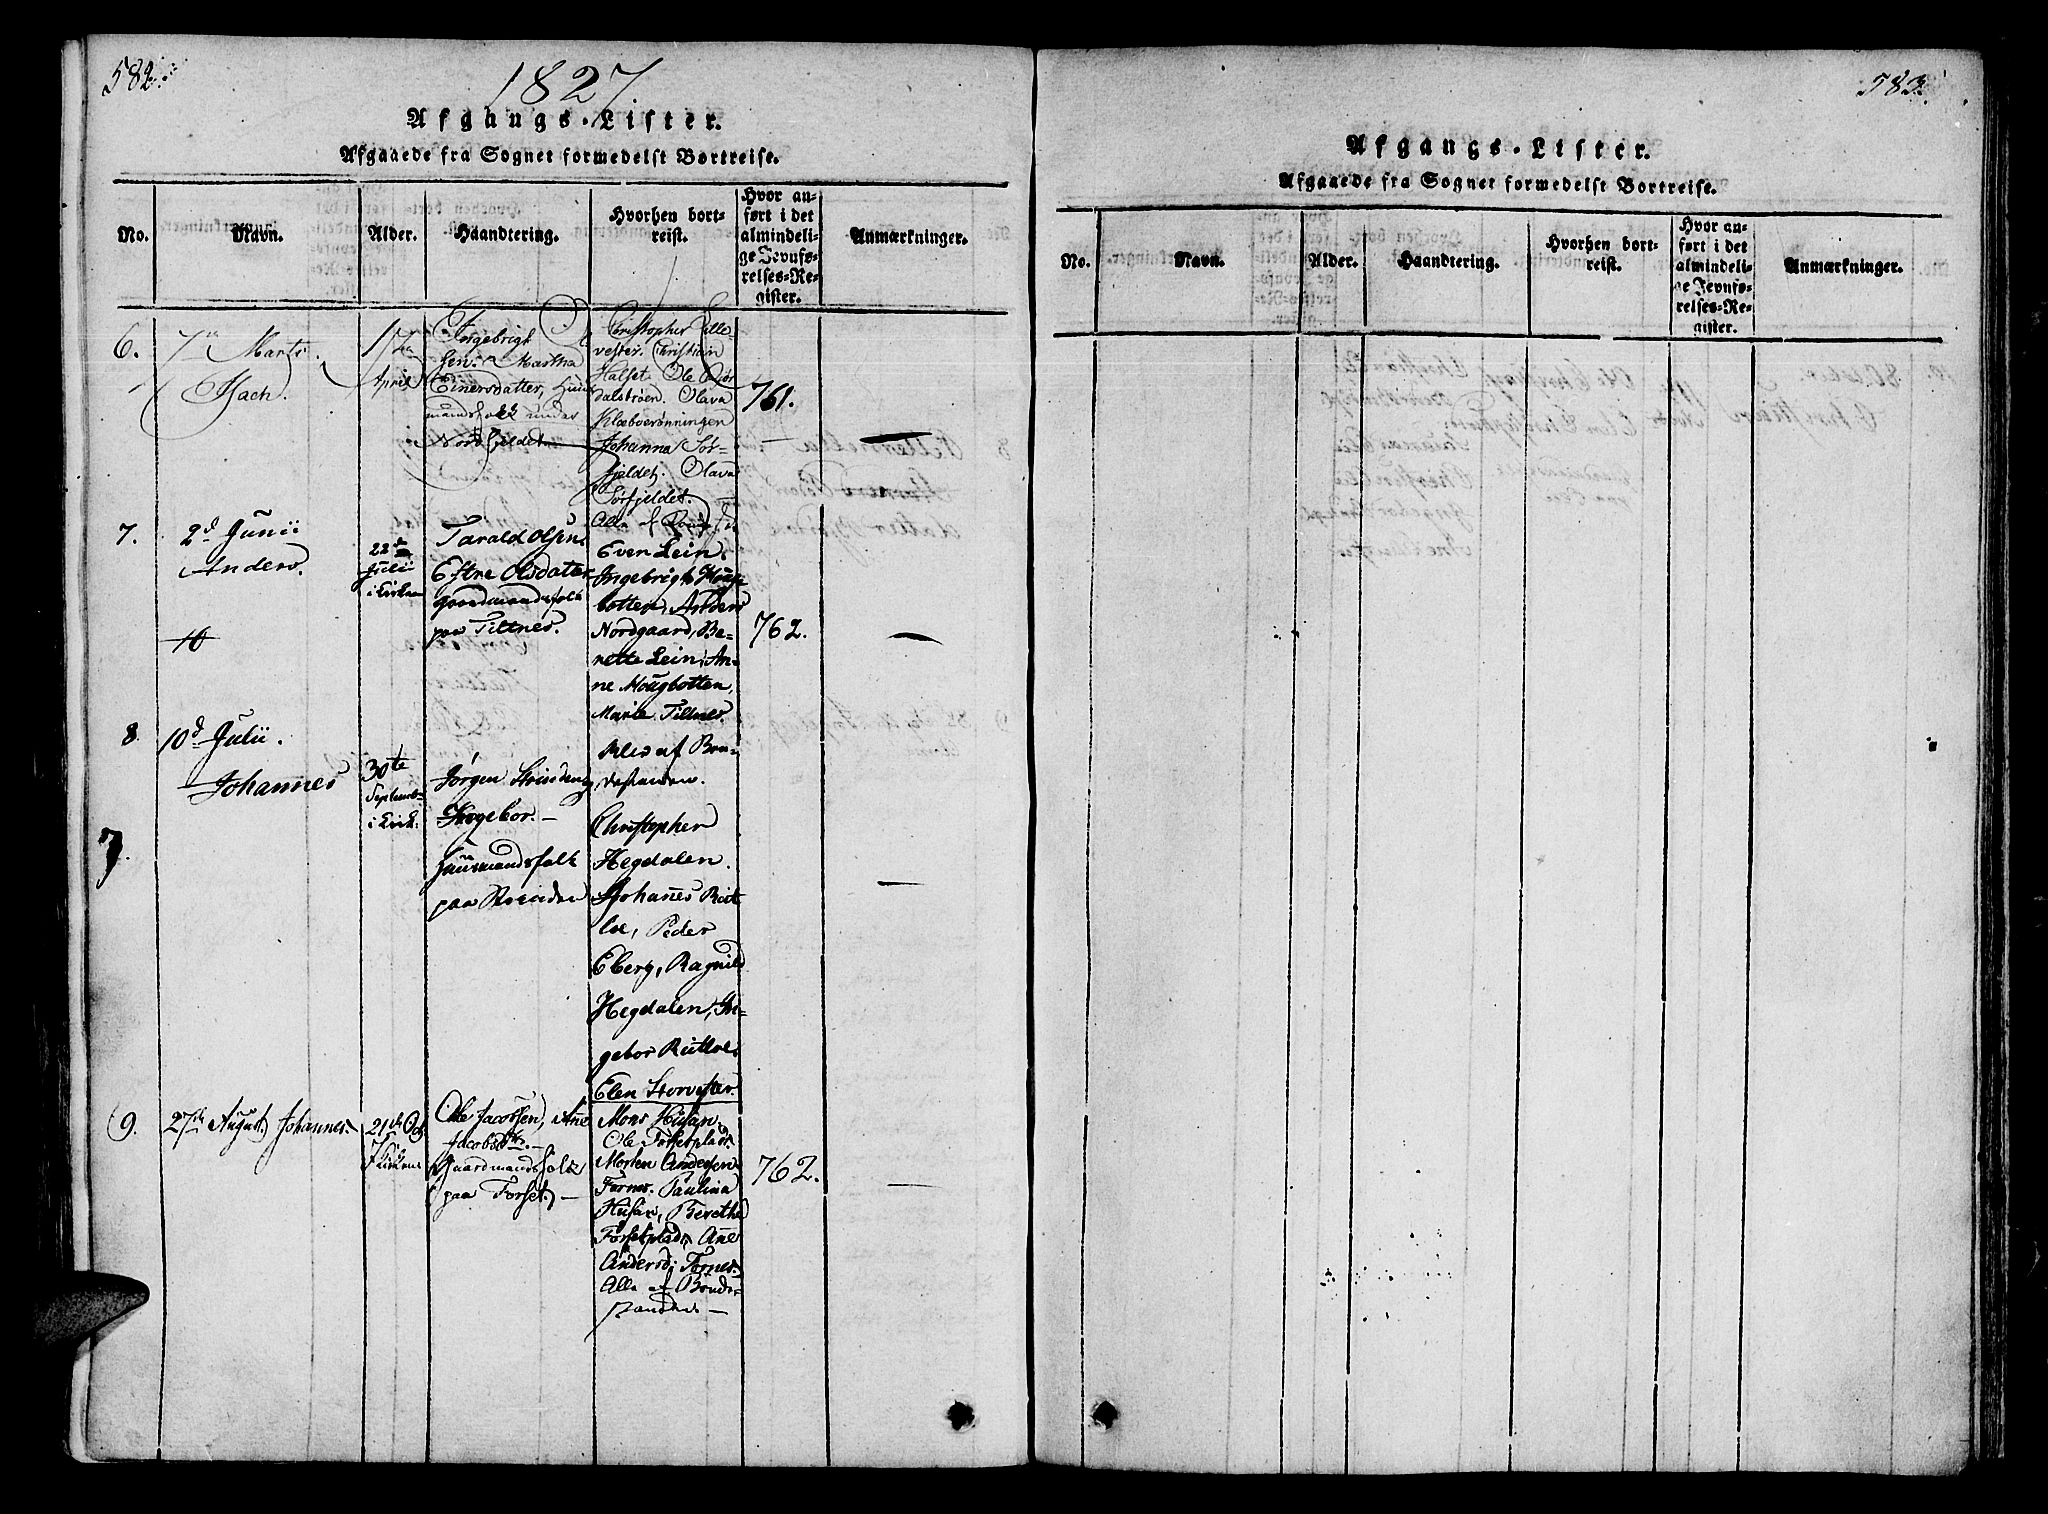 582.
1827.
Afgangs-Lister.
Afgaaede fra Sognet formedelst Bortreise.
No.
Navn.
Alder.
Haandtering.
Hvorhen bort-
reist.
Hvor an-
ført i det
almindeli-
ge Jevnfø-
relses-Re-
gister.
Anmærkninger.
6.
7de Marts.
Isach.
17de
April
Ingebrigt
sen. Martha
Einersdatter, Huus
mandsfolk under
Nordfjeldet
Christopher Lille
vester. Christian
Halset. Ole
dalstrøen. Olava
Klæboerønningen
Johanna Sør-
fjeldet, Olava
Sørfjeldet.
Alle af
761.
7.
2d Junii
Anders.
22de
Julii
i Kirken
Tarald Olsen.
Olsdatter
gaardmandsfolk
paa Tiltnes.
10
Even Lein.
Ingebrigt Houg-
botten, Anders
Nordgaard, Be-
rette Lein, An-
ne Hougbotten,
Marie Tiltnes.
Alle af Bon-
destanden.
762.
8.
10d Julii.
Johannes
30te
Septemb-
i Kirk:
Jørgen
Ingebor.-
Huusmandsfolk
paa
Christopher
Hegdalen.
Johanes
Peder
Eberg, Ragnild
Hegdalen, In-
gebor
Elen Storvester.
9.
27de August Johannes.
21de Oct
I Kirken
Ole Jacobsen, Ane
Jacobsdtr.
Gaardmandsfolk
paa Forset, -
Mons Husan,
Ole Forsetplads
Morten Andersen
Fornes. Paulina
Husan, Berethe
Forsetplads, Ane
Andersd: Fornes.
Alle af Bonde-
standen -
762.
583.
Afgangs-Lister.
Afgaaede fra Sognet formedelst Bortreise.
No.
Navn.
Alder.
Haandtering.
Hvorhen bort-
reist.
Hvor an-
ført i det
almindeli-
ge Jevnfø-
relses-Re-
gister.
Anmærkninger.